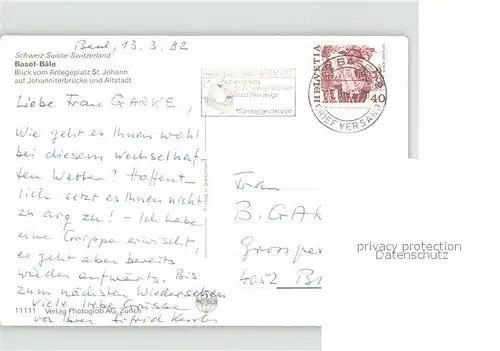 Basel, 13.3.82
Schweiz-Suisse-Switzerland
Basel-Bâle
Blick vom Anlegeplatz St. Johann
auf Johanniterbrücke und Altstadt
Liebe Frau GARKE,
Wie geht es Ihnen wohl
bei diesem wechselhaf-
ten Wetter? Hoffent-
lich setzt es Ihnen nicht
zu arg zu! - Ich habe
eine Grippe erwischt,
es geht aber bereits
wieder aufwärts. Bis
zum nächsten Wiedersehen
viele liebe Grüsse
von Ihrer
11111 Verlag Photoglob AG, Zürich
Printed in Switzerland
HELVETIA
40
BRIEFVERSAND
Frau
B. GAR
4052 B
privacy protection
Datenschutz